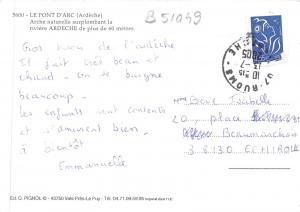 5600 - LE PONT D'ARC (Ardèche)
Arche naturelle surplombant la
rivière ARDECHE de plus de 60 mètres.
B51049
Gros bisous de l'ardèche
Il fait très beau et
chaud. On se baigne
beaucoup.
les enfants sont contents
et s'amusent bien.
à bientôt
Emmanuelle
07 RUOMS
ARDECHE
Isabelle
20, place
Beaumarchais
38130 ECHIROLLES
Ed. C. PIGNOL © - 43750 Vals-Près-Le Puy - Tél. 04.71.09.